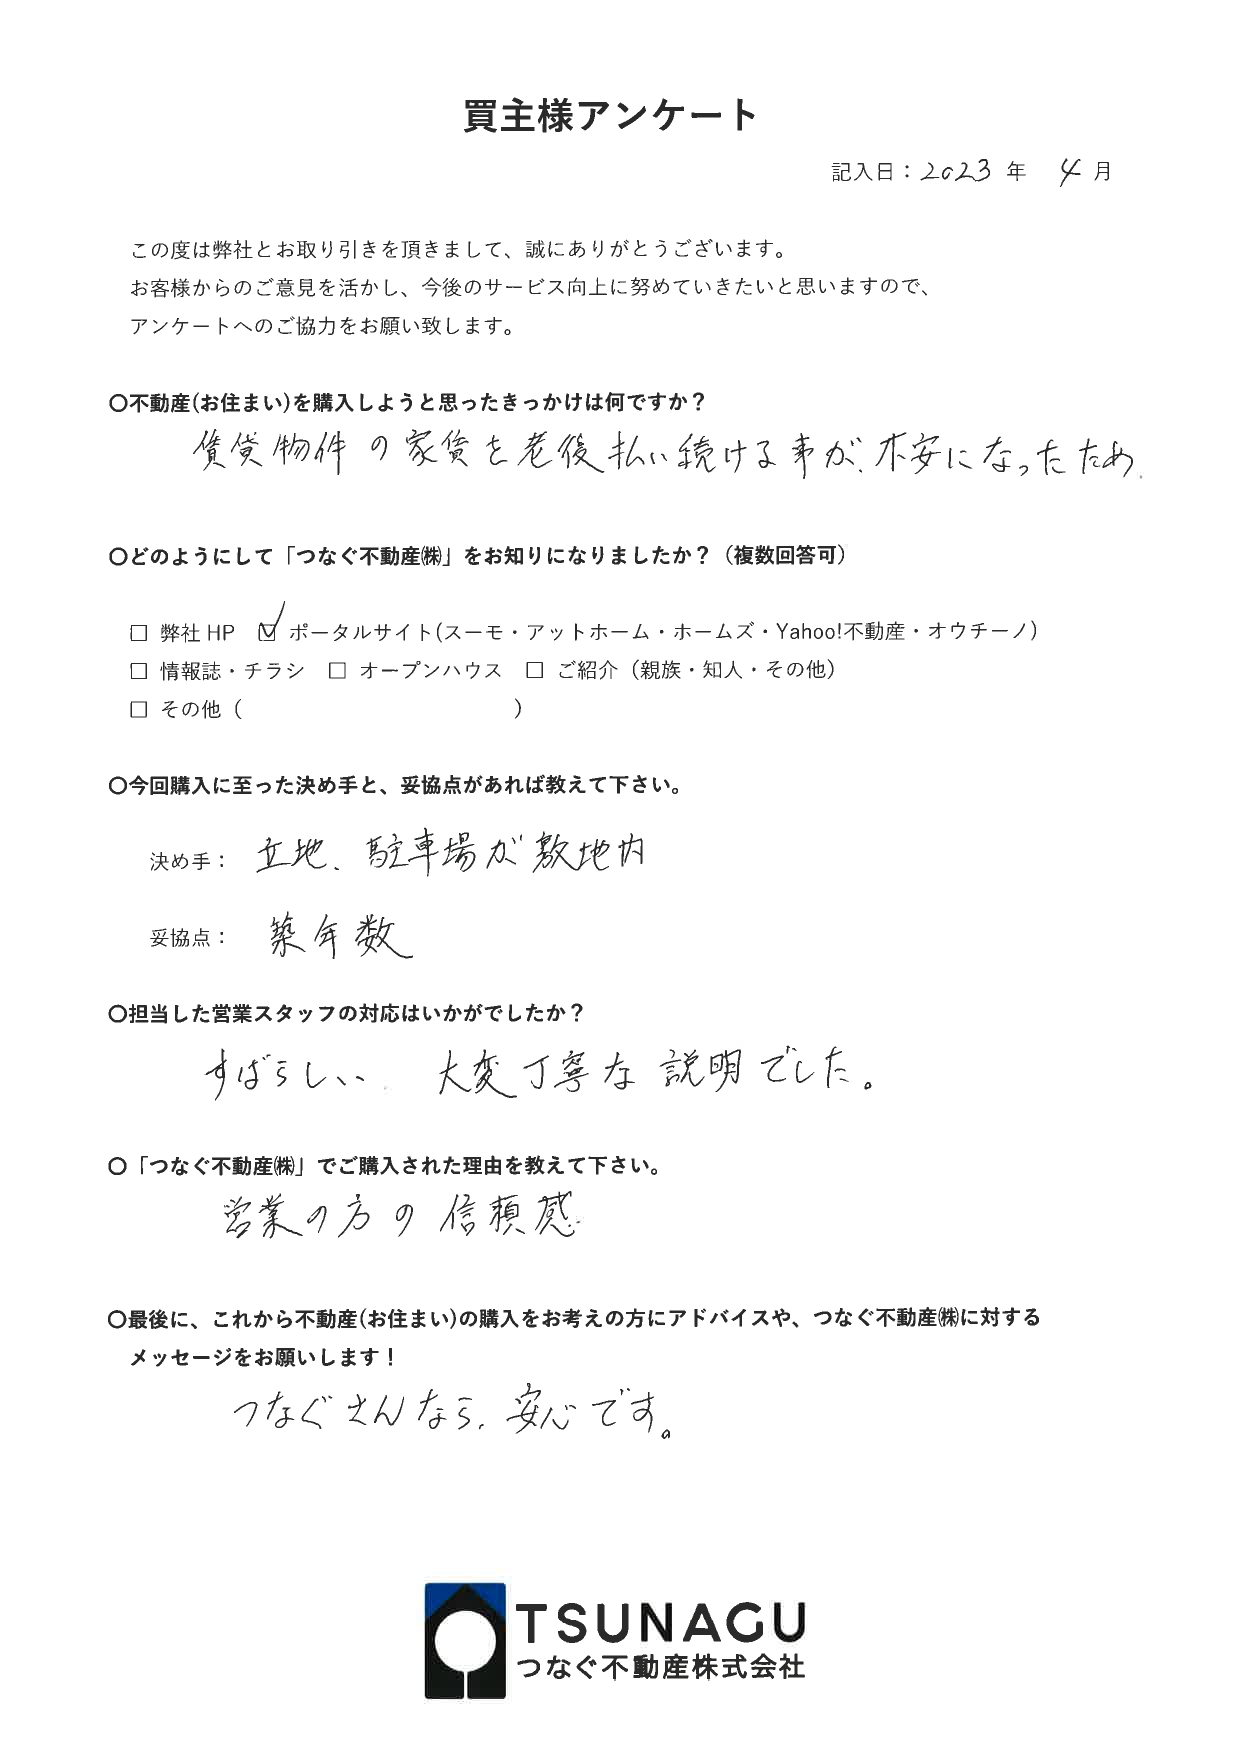 買主様アンケート
記入日：2023 年 4 月
この度は弊社とお取り引きを頂きまして、誠にありがとうございます。
お客様からのご意見を活かし、今後のサービス向上に努めていきたいと思いますので、
アンケートへのご協力をお願い致します。
〇不動産(お住まい)を購入しようと思ったきっかけは何ですか？
賃貸物件の家賃を老後払い続ける事が、不安になったため.
〇どのようにして「つなぐ不動産㈱」をお知りになりましたか？（複数回答可）
□ 弊社 HP ☑ ポータルサイト(スーモ・アットホーム・ホームズ・Yahoo!不動産・オウチーノ)
□ 情報誌・チラシ □ オープンハウス □ ご紹介（親族・知人・その他）
□ その他（ ）
〇今回購入に至った決め手と、妥協点があれば教えて下さい。
決め手： 立地、駐車場が敷地内
妥協点： 築年数
〇担当した営業スタッフの対応はいかがでしたか？
すばらしい 大変丁寧な説明でした。
〇「つなぐ不動産㈱」でご購入された理由を教えて下さい。
営業の方の信頼感
〇最後に、これから不動産(お住まい)の購入をお考えの方にアドバイスや、つなぐ不動産㈱に対する
メッセージをお願いします！
つなぐさんなら、安心です。
TSUNAGU
つなぐ不動産株式会社